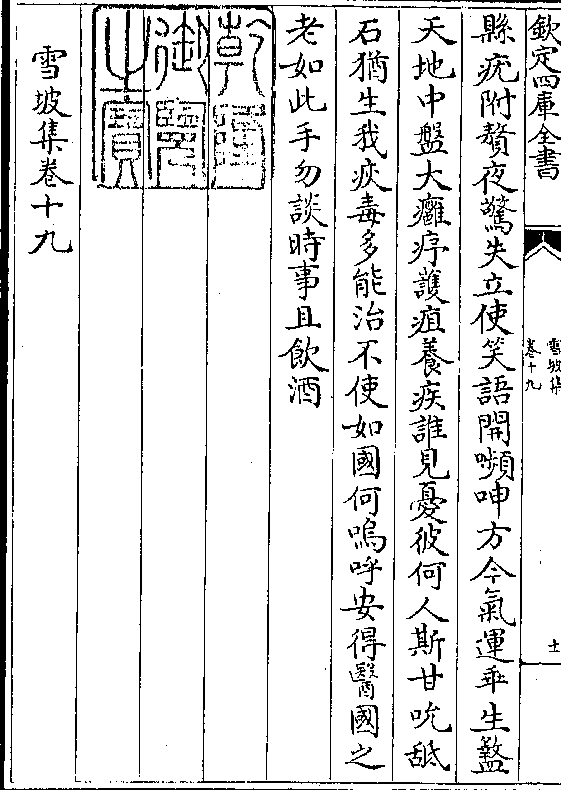 欽定四庫全書
雪坡集
卷十九
土
縣疣附贅夜驚失立使笑語開嚬呻方今氣運乖生盭
天地中盤大癰疛護疽養疾誰見憂彼何人斯甘吮舐
石猶生我疢毒多能治不使如國何嗚呼安得醫國之
老如此手勿談時事且飲酒
乾隆
御覽
之寶
雪坡集卷十九